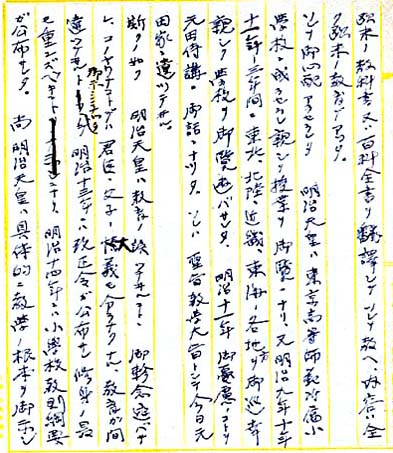 弘米ノ教科書又ハ百科全書ヲ飜譯シテソレヲ敎ヘ、内容ハ全
ク弘米ノ敎育デアッタ。
ソレヲ御心配アラセラレ 明治天皇ハ東京高等師範附属小
學校ニ成ラセラレ親シク授業ヲ御覽ニナリ、又明治九年十年
十一年ト三年間ニ東北、北陸、近畿、東海ノ各地方ヲ御巡幸
親シク學校ヲ御覽遊バサレタ。 明治十一年 御憂慮
元田侍講ニ御話ニナッタ。ソレハ聖旨敎學大旨トシテ今日元
田家ニ遺ッテヰル。
斯クノ如ク 明治天皇ハ敎育ノ 御軫念遊バサ
レ、コノヤウナコトデハ君臣、父子ノ大義モ分ラナクナル、敎育ガ間
違 明治十三年ニハ改正令ガ公布サレ修身ヲ最
モ重ンズベキ 明治十四年ニハ小學校敎則綱要
ガ公布サレタ。 尚 明治天皇ハ具体的ニ敎學ノ根本ヲ御示シ